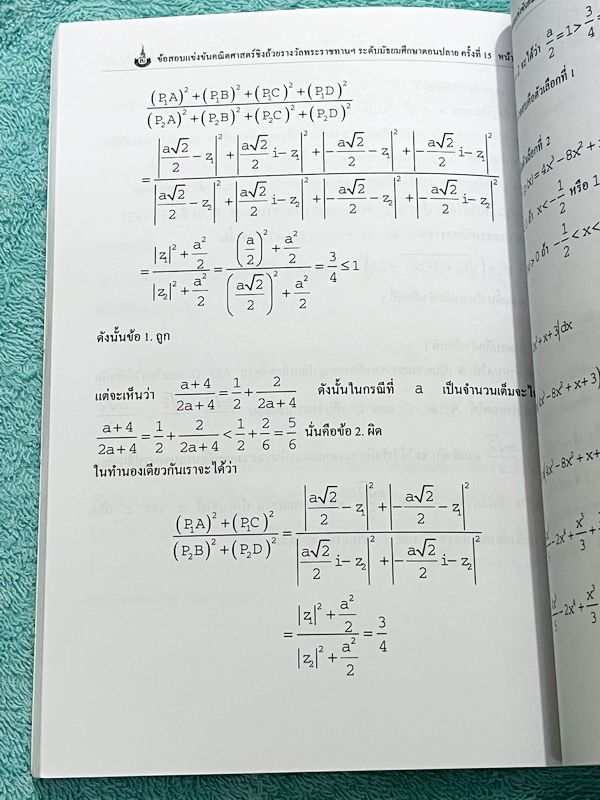 ข้อสอบแข่งขันคณิตศาสตร์ชิงถ้วยรางวัลพระราชทานฯ ระดับมัธยมศึกษาตอนปลาย ครั้งที่ 15 หน้า
\frac{(P₁A)²+(P₁B)²+(P₁C)²+(P₁D)²}{(P₂A)²+(P₂B)²+(P₂C)²+(P₂D)²}
= \frac{|\frac{a√2}{2}-z₁|²+|\frac{a√2}{2}i-z₁|²+|-\frac{a√2}{2}-z₁|²+|-\frac{a√2}{2}i-z₁|²}{|\frac{a√2}{2}-z₂|²+|\frac{a√2}{2}i-z₂|²+|-\frac{a√2}{2}-z₂|²+|-\frac{a√2}{2}i-z₂|²}
= \frac{|z₁|²+\frac{a²}{2}}{|z₂|²+\frac{a²}{2}} = \frac{(\frac{a}{2})²+\frac{a²}{2}}{(\frac{a√2}{2})²+\frac{a²}{2}} = \frac{3}{4} ≤ 1
ดังนั้นข้อ 1. ถูก
แต่จะเห็นว่า \frac{a+4}{2a+4} = \frac{1}{2}+\frac{2}{2a+4} ดังนั้นในกรณีที่ a เป็นจำนวนเต็มจะได้
\frac{a+4}{2a+4} = \frac{1}{2}+\frac{2}{2a+4} < \frac{1}{2}+\frac{2}{6} = \frac{5}{6} นั่นคือข้อ 2. ผิด
ในทำนองเดียวกันเราจะได้ว่า
\frac{(P₁A)²+(P₁C)²}{(P₂B)²+(P₂D)²} = \frac{|\frac{a√2}{2}-z₁|²+|-\frac{a√2}{2}-z₁|²}{|\frac{a√2}{2}i-z₂|²+|-\frac{a√2}{2}i-z₂|²}
= \frac{|z₁|²+\frac{a²}{2}}{|z₂|²+\frac{a²}{2}} = \frac{3}{4}
จะได้ว่า \frac{a}{2} = 1 > \frac{3}{4}
ตัวเลือกที่ 1
เลือกที่ 2
(x) = 4x³-8x²+
ถ้า x < -\frac{1}{2} หรือ 1
> 0 ถ้า -\frac{1}{2} < x <
+x+3|dx
-8x²+x+3)
4x³-8x²+x
-2x⁴+\frac{x³}{3}
-2x⁴+\frac{x³}{3}